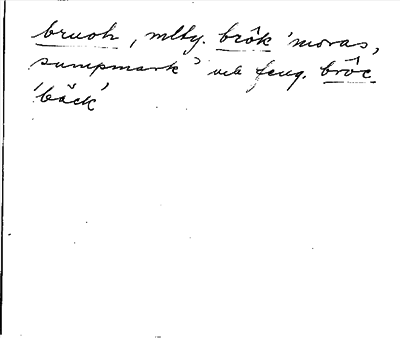 bruoh, mlty. brôk 'moras,
sumpmark' och feng. brôc
'bäck'